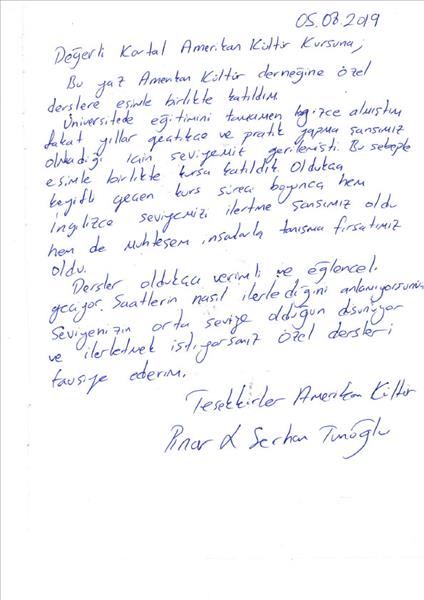 05.08.2019
Değerli Kartal Amerikan Kültür Kursuna,
Bu yaz Amerikan Kültür derneğine özel
derslere eşimle birlikte katıldım
Üniversitede eğitimini tamamen ingilizce almıştım
fakat yıllar geçtikçe ve pratik yapma şansımız
olmadığı için seviyemiz gerilemişti. Bu sebeple
eşimle birlikte kursa katıldık. Oldukça
keyifli geçen kurs süreci boyunca hem
ingilizce seviyemizi ilerletme şansımız oldu
hem de muhteşem insanlarla tanışma fırsatımız
oldu.
Dersler oldukça verimli ve eğlenceli
geçiyor. Saatlerin nasıl ilerlediğini anlamıyorsunuz
Seviyenizin orta seviye olduğun düşünüyor
ve ilerletmek istiyorsanız özel dersleri
tavsiye ederim.
Teşekkürler Amerikan Kültür
Pınar & Serhan